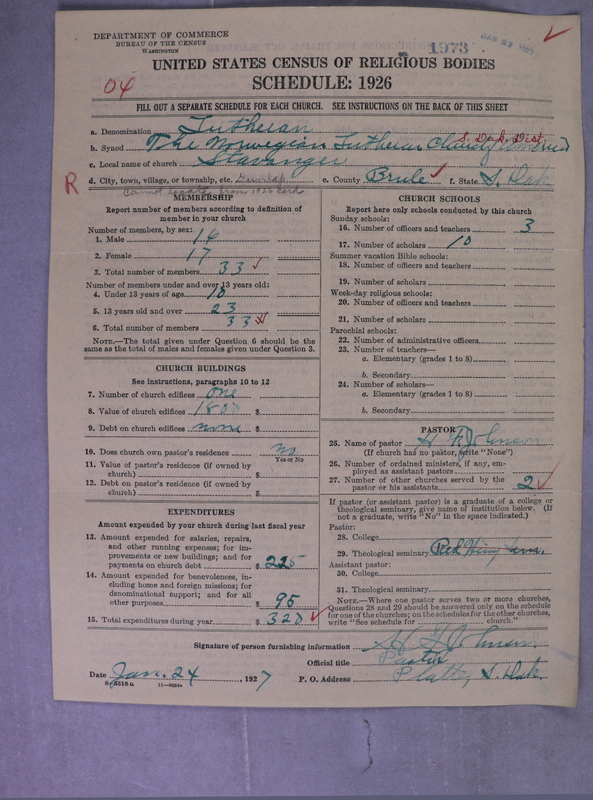 DEPARTMENT OF COMMERCE
BUREAU OF THE CENSUS
WASHINGTON
1973
UNITED STATES CENSUS OF RELIGIOUS BODIES
SCHEDULE: 1926
04
FILL OUT A SEPARATE SCHEDULE FOR EACH CHURCH. SEE INSTRUCTIONS ON THE BACK OF THIS SHEET
a. Denomination Lutheran
S. Dak. Dist.
b. Synod The Norwegian Lutheran Church America
c. Local name of church Stavanger
R d. City, town, village, or township, etc. Dunlap e. County Brule f. State S. Dak.
Cannot locate from 1936 card
MEMBERSHIP
Report number of members according to definition of
member in your church
Number of members, by sex:
1. Male 16
2. Female 17
3. Total number of members 33
Number of members under and over 13 years old:
4. Under 13 years of age 10
5. 13 years old and over 23
6. Total number of members 33
NOTE.—The total given under Question 6 should be
same as the total of males and females given under Question 3.
CHURCH BUILDINGS
See instructions, paragraphs 10 to 12
7. Number of church edifices one
8. Value of church edifices 1800 $
9. Debt on church edifices none $
10. Does church own pastor's residence no
Yes or No
11. Value of pastor's residence (if owned by
church) $
12. Debt on pastor's residence (if owned by
church) $
EXPENDITURES
Amount expended by your church during last fiscal year
13. Amount expended for salaries, repairs,
and other running expenses; for im-
provements or new buildings; and for
payments on church debt $ 225
14. Amount expended for benevolences, in-
cluding home and foreign missions; for
denominational support; and for all
other purposes $ 95
15. Total expenditures during year $ 320
CHURCH SCHOOLS
Report here only schools conducted by this church
Sunday schools:
16. Number of officers and teachers 3
17. Number of scholars 10
Summer vacation Bible schools:
18. Number of officers and teachers
19. Number of scholars
Week-day religious schools:
20. Number of officers and teachers
21. Number of scholars
Parochial schools:
22. Number of administrative officers
23. Number of teachers—
a. Elementary (grades 1 to 8)
b. Secondary
24. Number of scholars—
a. Elementary (grades 1 to 8)
b. Secondary
PASTOR
25. Name of pastor H F Johnson
(If church has no pastor, write "None")
26. Number of ordained ministers, if any, em-
ployed as assistant pastors
27. Number of other churches served by the
pastor or his assistants 2
If pastor (or assistant pastor) is a graduate of a college or
theological seminary, give name of institution below. (If
not a graduate, write "No" in the space indicated.)
Pastor:
28. College
29. Theological seminary Red Wing Sem.
Assistant pastor:
30. College
31. Theological seminary
NOTE.—Where one pastor serves two or more churches,
Questions 28 and 29 should be answered only on the schedule
for one of the churches; on the schedules for the other churches,
write "See schedule for church."
Signature of person furnishing information H F Johnson
Official title Pastor
Date Jan. 24, 1927 P. O. Address Platte, S. Dak.
8-5518a 11-9554a